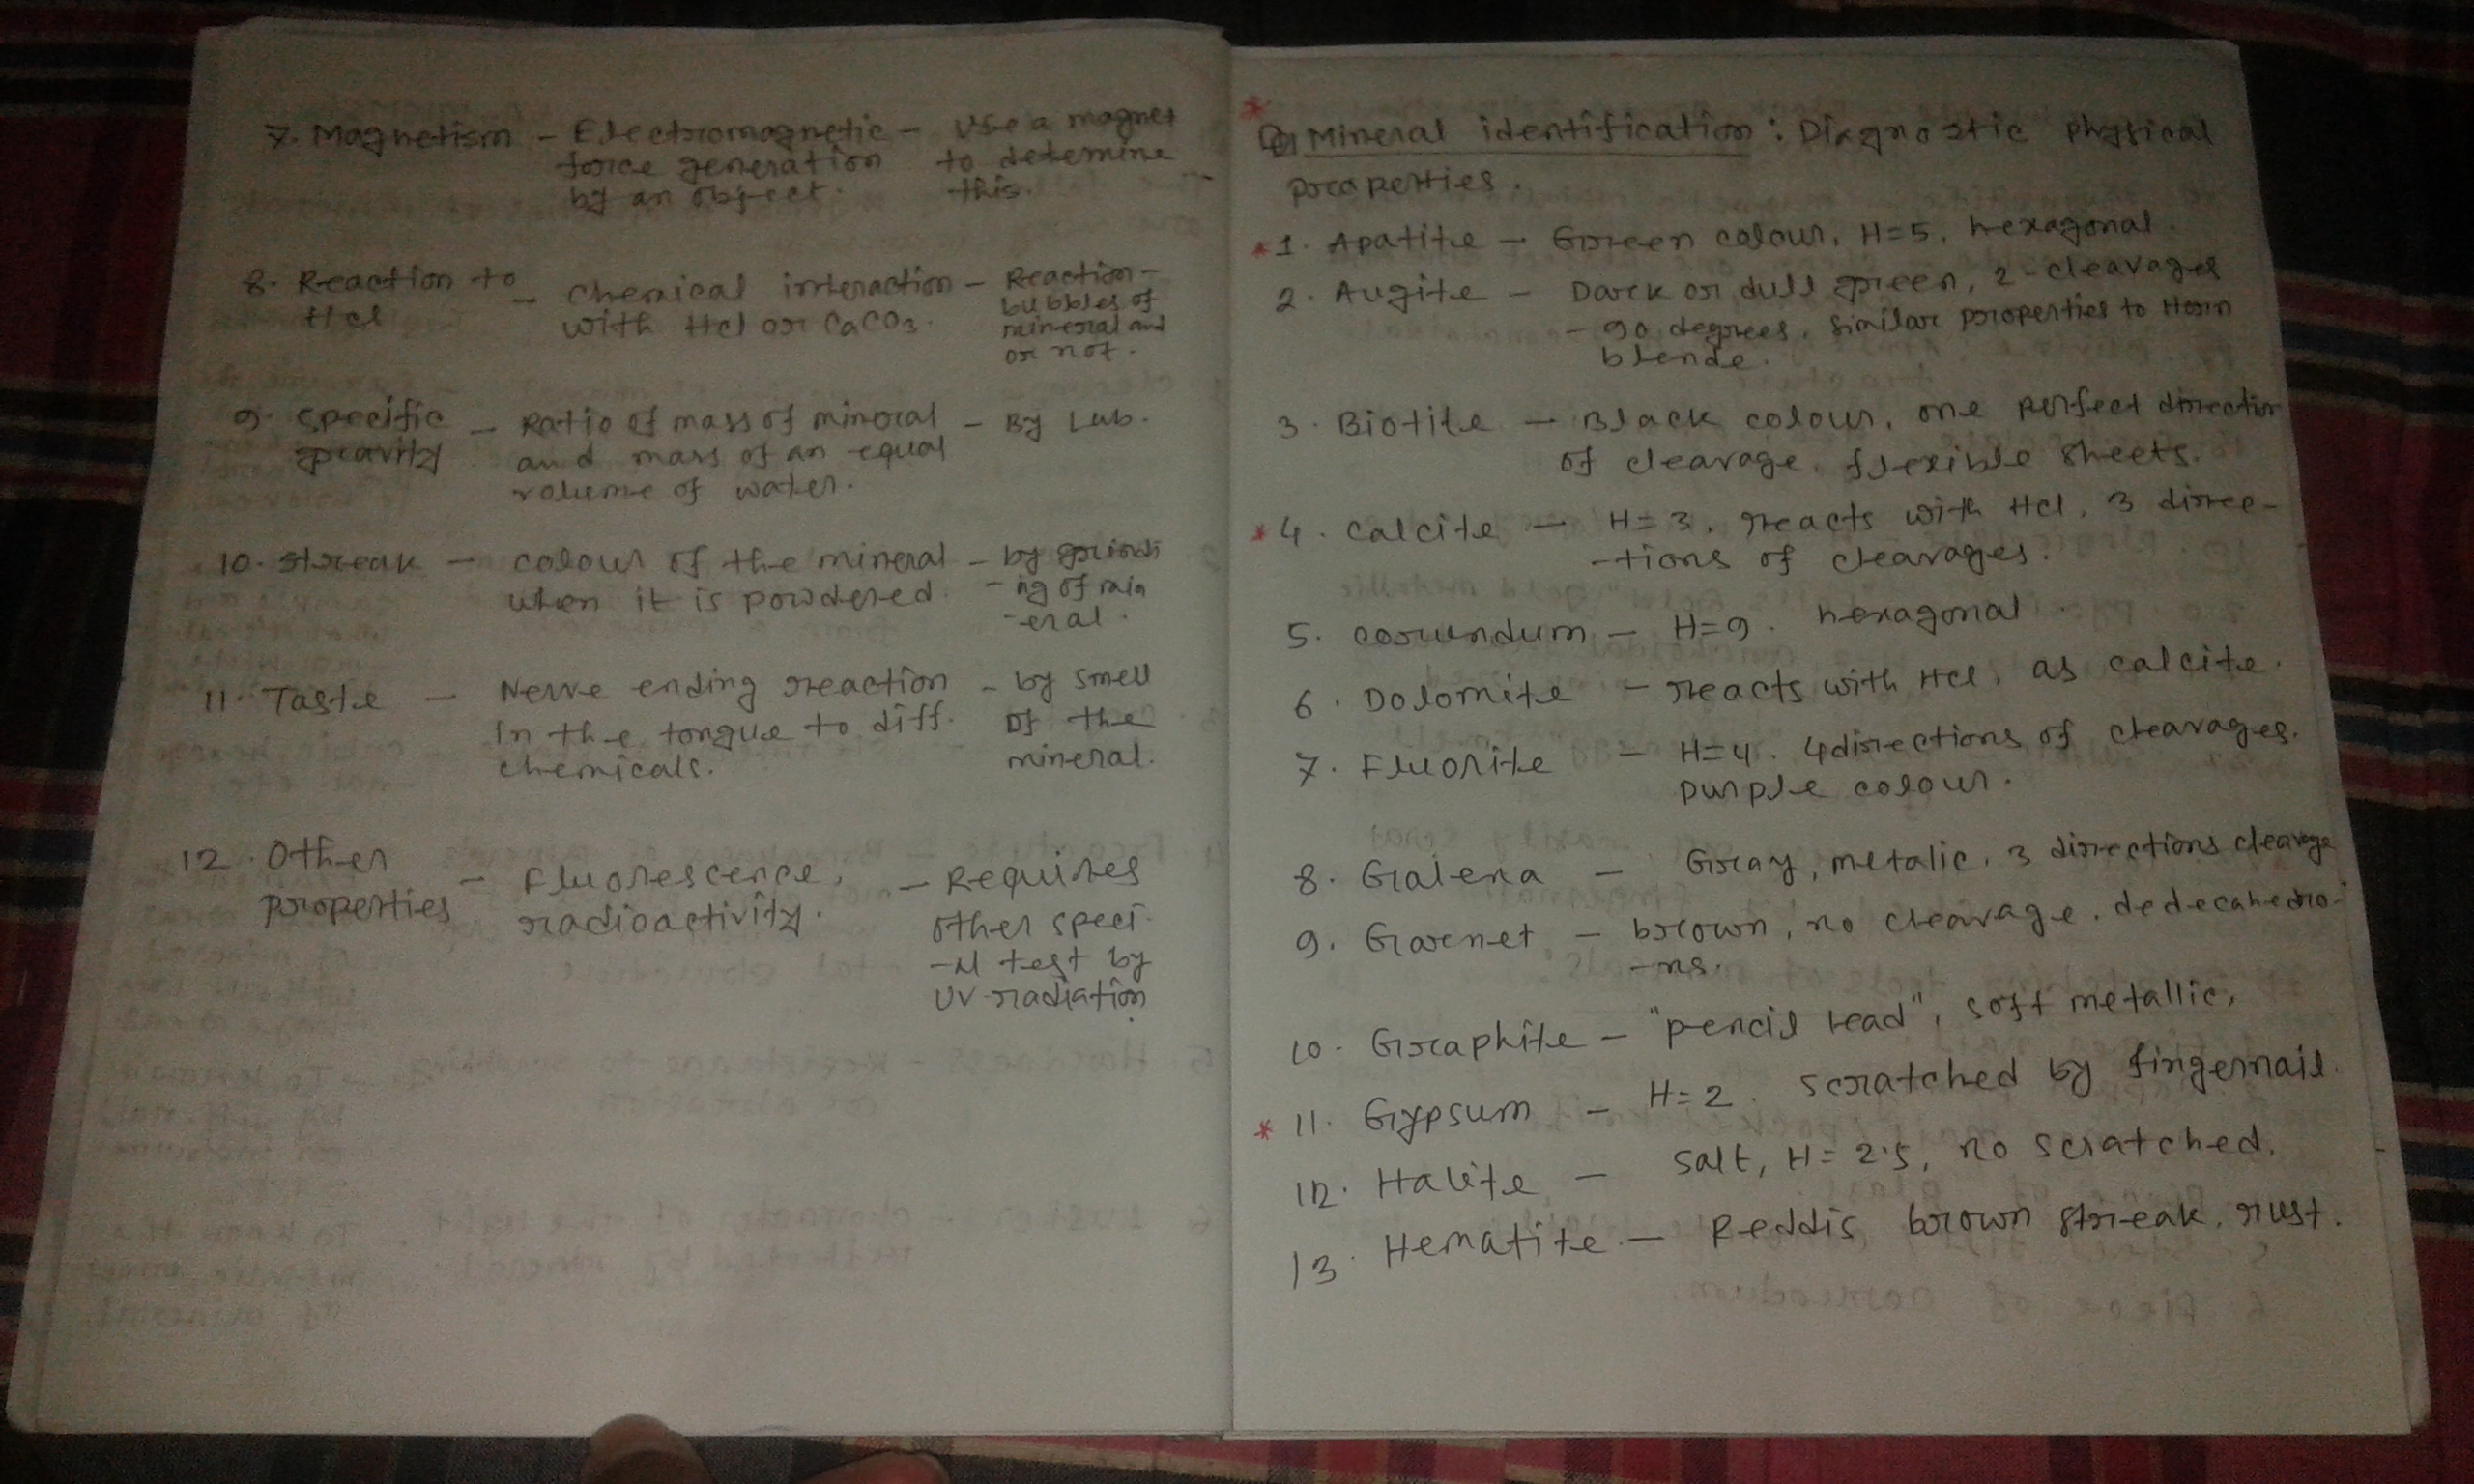 7. Magnetism - Electromagnetic - Use a magnet
force generation to detemine
by an object. this.
8. Reaction to - chemical interaction - Reaction -
Hcl with Hcl or CaCO3. bubbles of
mineral and
or not.
9. Specific - Ratio of mass of mineral - By Lab.
gravity and mass of an equal
volume of water.
10. Streak - colour of the mineral - by grindi
when it is powdered. -ng of min
-eral.
11. Taste - Nerve ending reaction - by smell
in the tongue to diff. of the
chemicals. mineral.
12. Other - Fluorescence, - Requires
properties radioactivity. other speci
-al test by
UV-radiation.
Mineral identification: Diagnostic physical
properties.
* 1. Apatite - Green colour, H=5, hexagonal.
2. Augite - Dark or dull green, 2 cleavages
- 90 degrees, similar properties to Horn
blende.
3. Biotite - Black colour, one perfect direction
of cleavage, flexible sheets.
* 4. Calcite - H=3, reacts with Hcl, 3 direc-
-tions of cleavages.
5. Corundum - H=9. hexagonal.
6. Dolomite - reacts with Hcl, as calcite.
7. Fluorite - H=4. 4 directions of cleavages.
purple colour.
8. Galena - Gray, metalic, 3 directions cleavage
9. Garnet - brown, no cleavage, dedecahedro-
-ns.
10. Graphite - "pencil lead", soft metallic,
* 11. Gypsum - H=2. scratched by fingernail.
12. Halite - salt, H=2.5, no scratched.
13. Hematite - Reddis brown streak, rust.